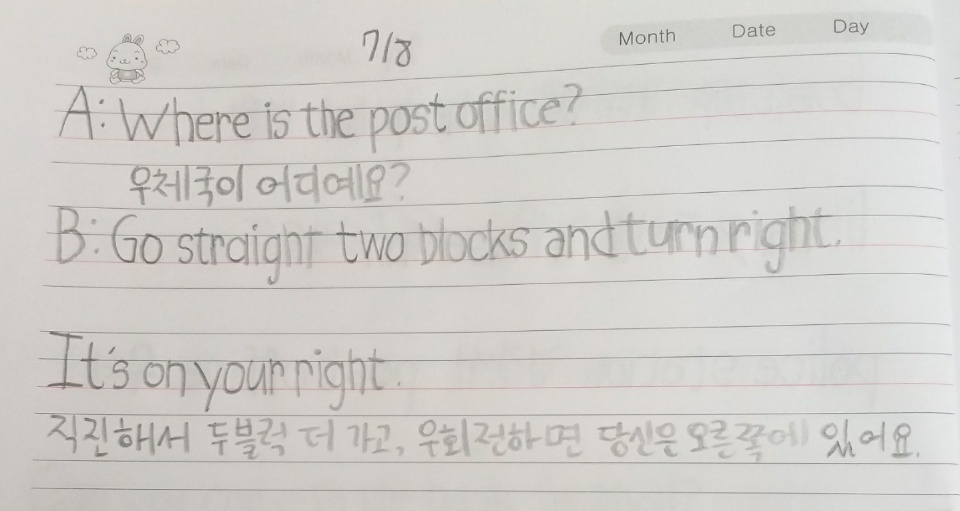 Month Date Day
7/8
A: Where is the post office?
우체국이 어디예요?
B: Go straight two blocks and turn right.
It's on your right.
직진해서 두블럭 더 가고, 우회전하면 당신은 오른쪽에 있어요.